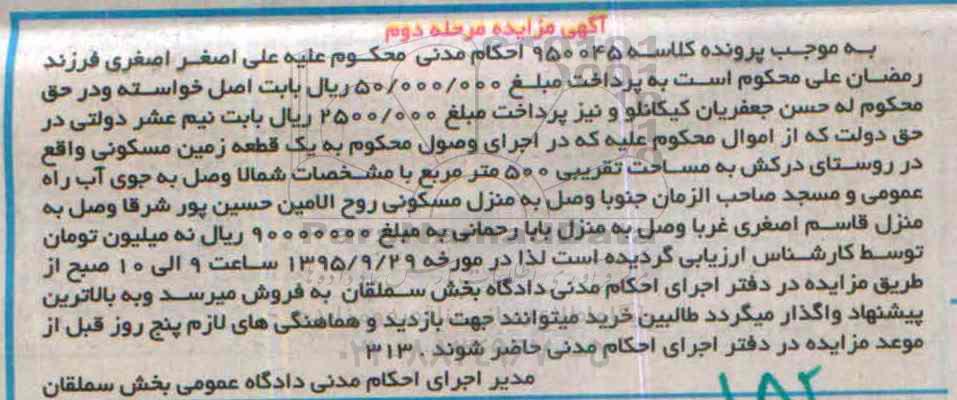 آگهی مزایده مرحله دوم
به موجب پرونده کلاسه ۹۵۰۰۴۵ احکام مدنی محکوم علیه علی اصغر اصغری فرزند
رمضان علی محکوم است به پرداخت مبلغ ۵۰/۰۰۰/۰۰۰ ریال بابت اصل خواسته ودر حق
محکوم له حسن جعفریان کیکانلو و نیز پرداخت مبلغ ۲۵۰۰/۰۰۰ ریال بابت نیم عشر دولتی در
حق دولت که از اموال محکوم علیه که در اجرای وصول محکوم به یک قطعه زمین مسکونی واقع
در روستای درکش به مساحت تقریبی ۵۰۰ متر مربع با مشخصات شمالا وصل به جوی آب راه
عمومی و مسجد صاحب الزمان جنوبا وصل به منزل مسکونی روح الامین حسین پور شرقا وصل به
منزل قاسم اصغری غربا وصل به منزل بابا رحمانی به مبلغ ۹۰۰۰۰۰۰۰ ریال نه میلیون تومان
توسط کارشناس ارزیابی گردیده است لذا در مورخه ۱۳۹۵/۹/۲۹ ساعت ۹ الی ۱۰ صبح از
طریق مزایده در دفتر اجرای احکام مدنی دادگاه بخش سملقان به فروش میرسد وبه بالاترین
پیشنهاد واگذار میگردد طالبین خرید میتوانند جهت بازدید و هماهنگی های لازم پنج روز قبل از
موعد مزایده در دفتر اجرای احکام مدنی حاضر شوند . ۳۱۳۰
مدیر اجرای احکام مدنی دادگاه عمومی بخش سملقان
۱۸۲